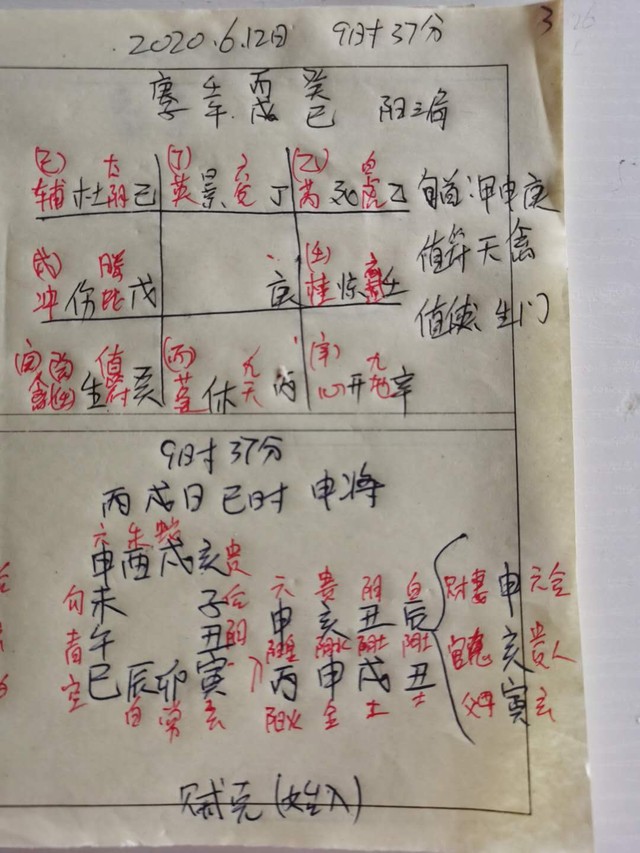 2020.6.12日 9时37分 3
庚 壬 丙 癸
子 午 戌 巳 阳三局
(己) 太 (丁) 六 (乙) 白
辅 杜 阴 己 英 景 合 丁 芮 死 虎 乙 旬首:甲申庚
值符天禽
(戊) 腾 (壬)
冲 伤 蛇 戊 庚 柱 惊 壬
值使 生门
值 (丙) 九 (辛) 九
生 符 癸 蓬 休 天 丙 心 开 地 辛
9时37分
丙戌日 巳时 申将
六 朱
申酉戌亥 贵
勾 未 子 后 六 贵 阴 白 财 妻 申 六合
青 午 丑 阴 申 亥 丑 辰 官 鬼 亥 贵人
空 巳辰卯寅 丙 申 戌 丑 父母 寅 玄
白 常 玄 阳火 金 土 土
贼克(始入)